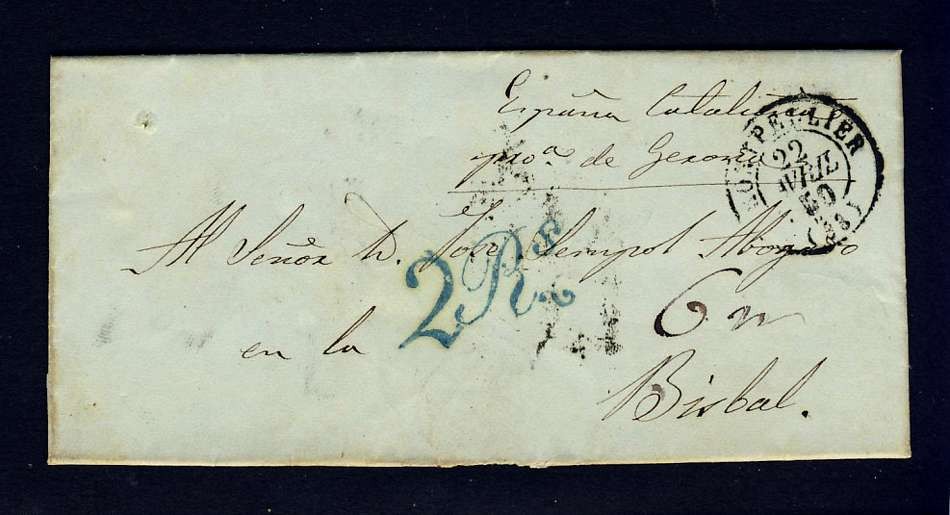 España Cataluña
proª de Gerona
MONTPELLIER
22
AVRIL
50
(33)
Al Señor D. José Sempol Abogado
2Rs
6 rn
en la
Bisbal.